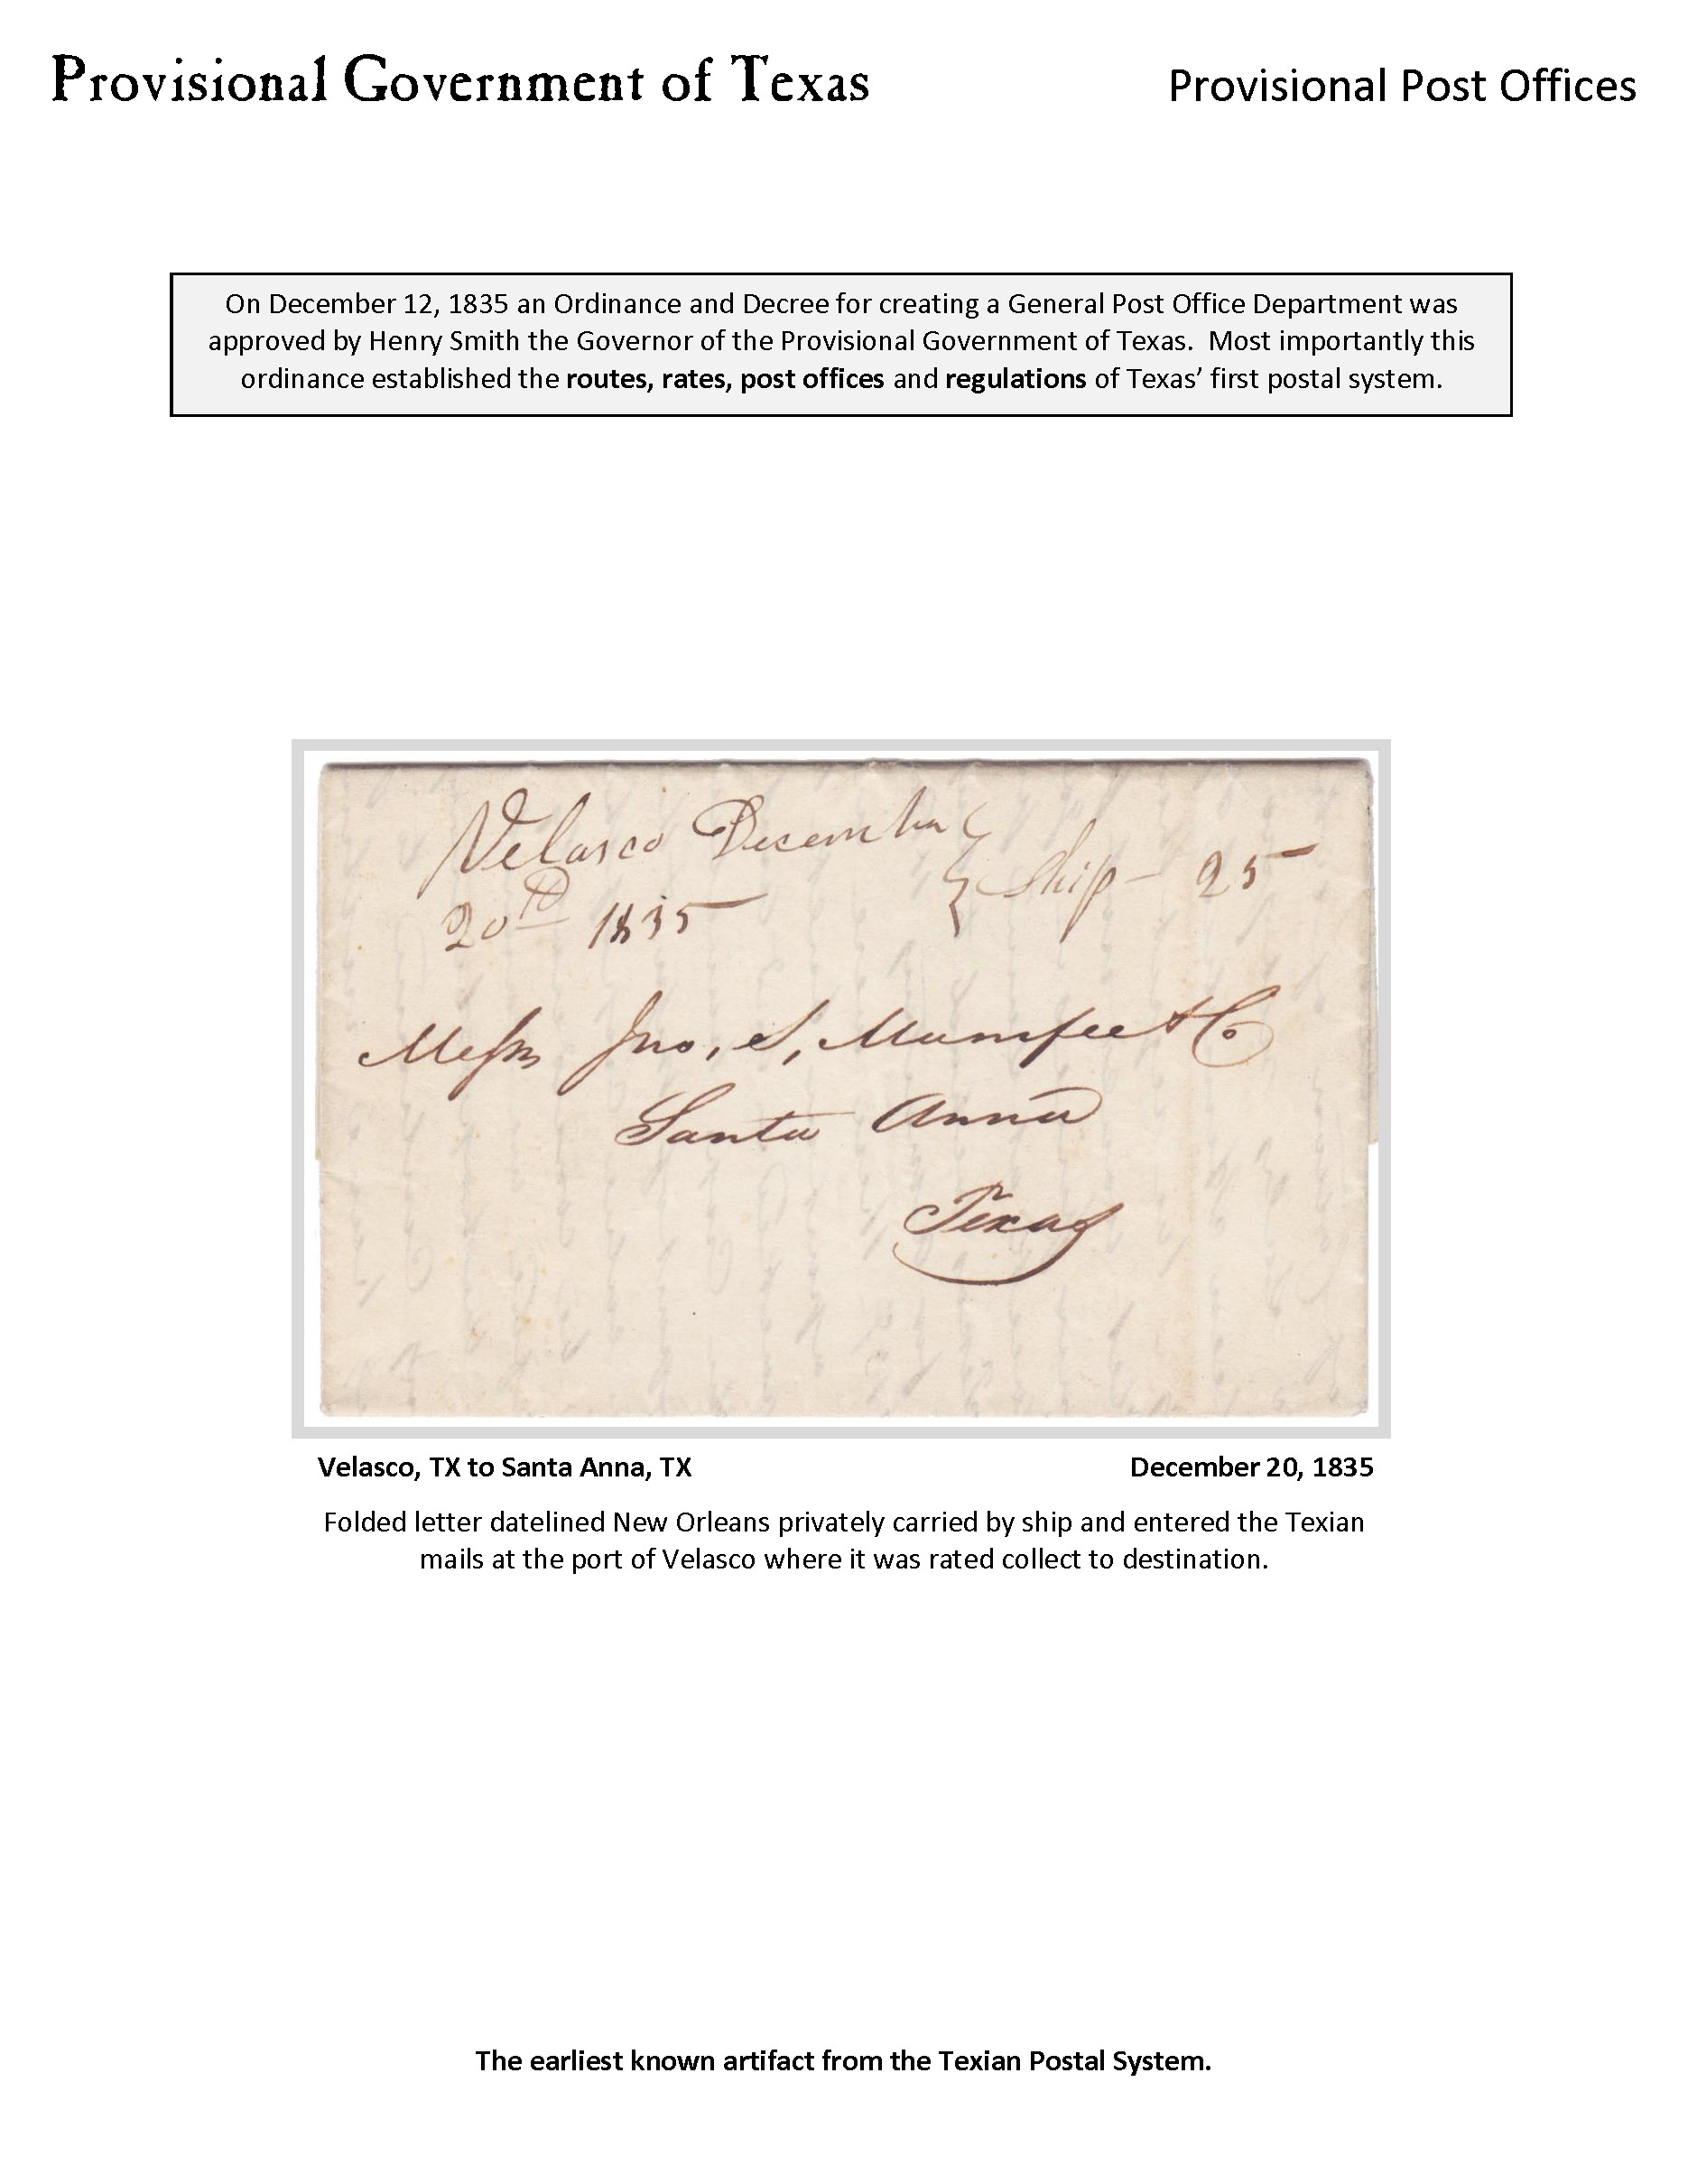 Provisional Government of Texas
Provisional Post Offices
On December 12, 1835 an Ordinance and Decree for creating a General Post Office Department was
approved by Henry Smith the Governor of the Provisional Government of Texas.  Most importantly this
ordinance established the routes, rates, post offices and regulations of Texas’ first postal system.
Velasco December
20th 1835
Ship - 25
Messrs Jno, S,
Santa Anna
Texas
Velasco, TX to Santa Anna, TX
December 20, 1835
Folded letter datelined New Orleans privately carried by ship and entered the Texian
mails at the port of Velasco where it was rated collect to destination.
The earliest known artifact from the Texian Postal System.